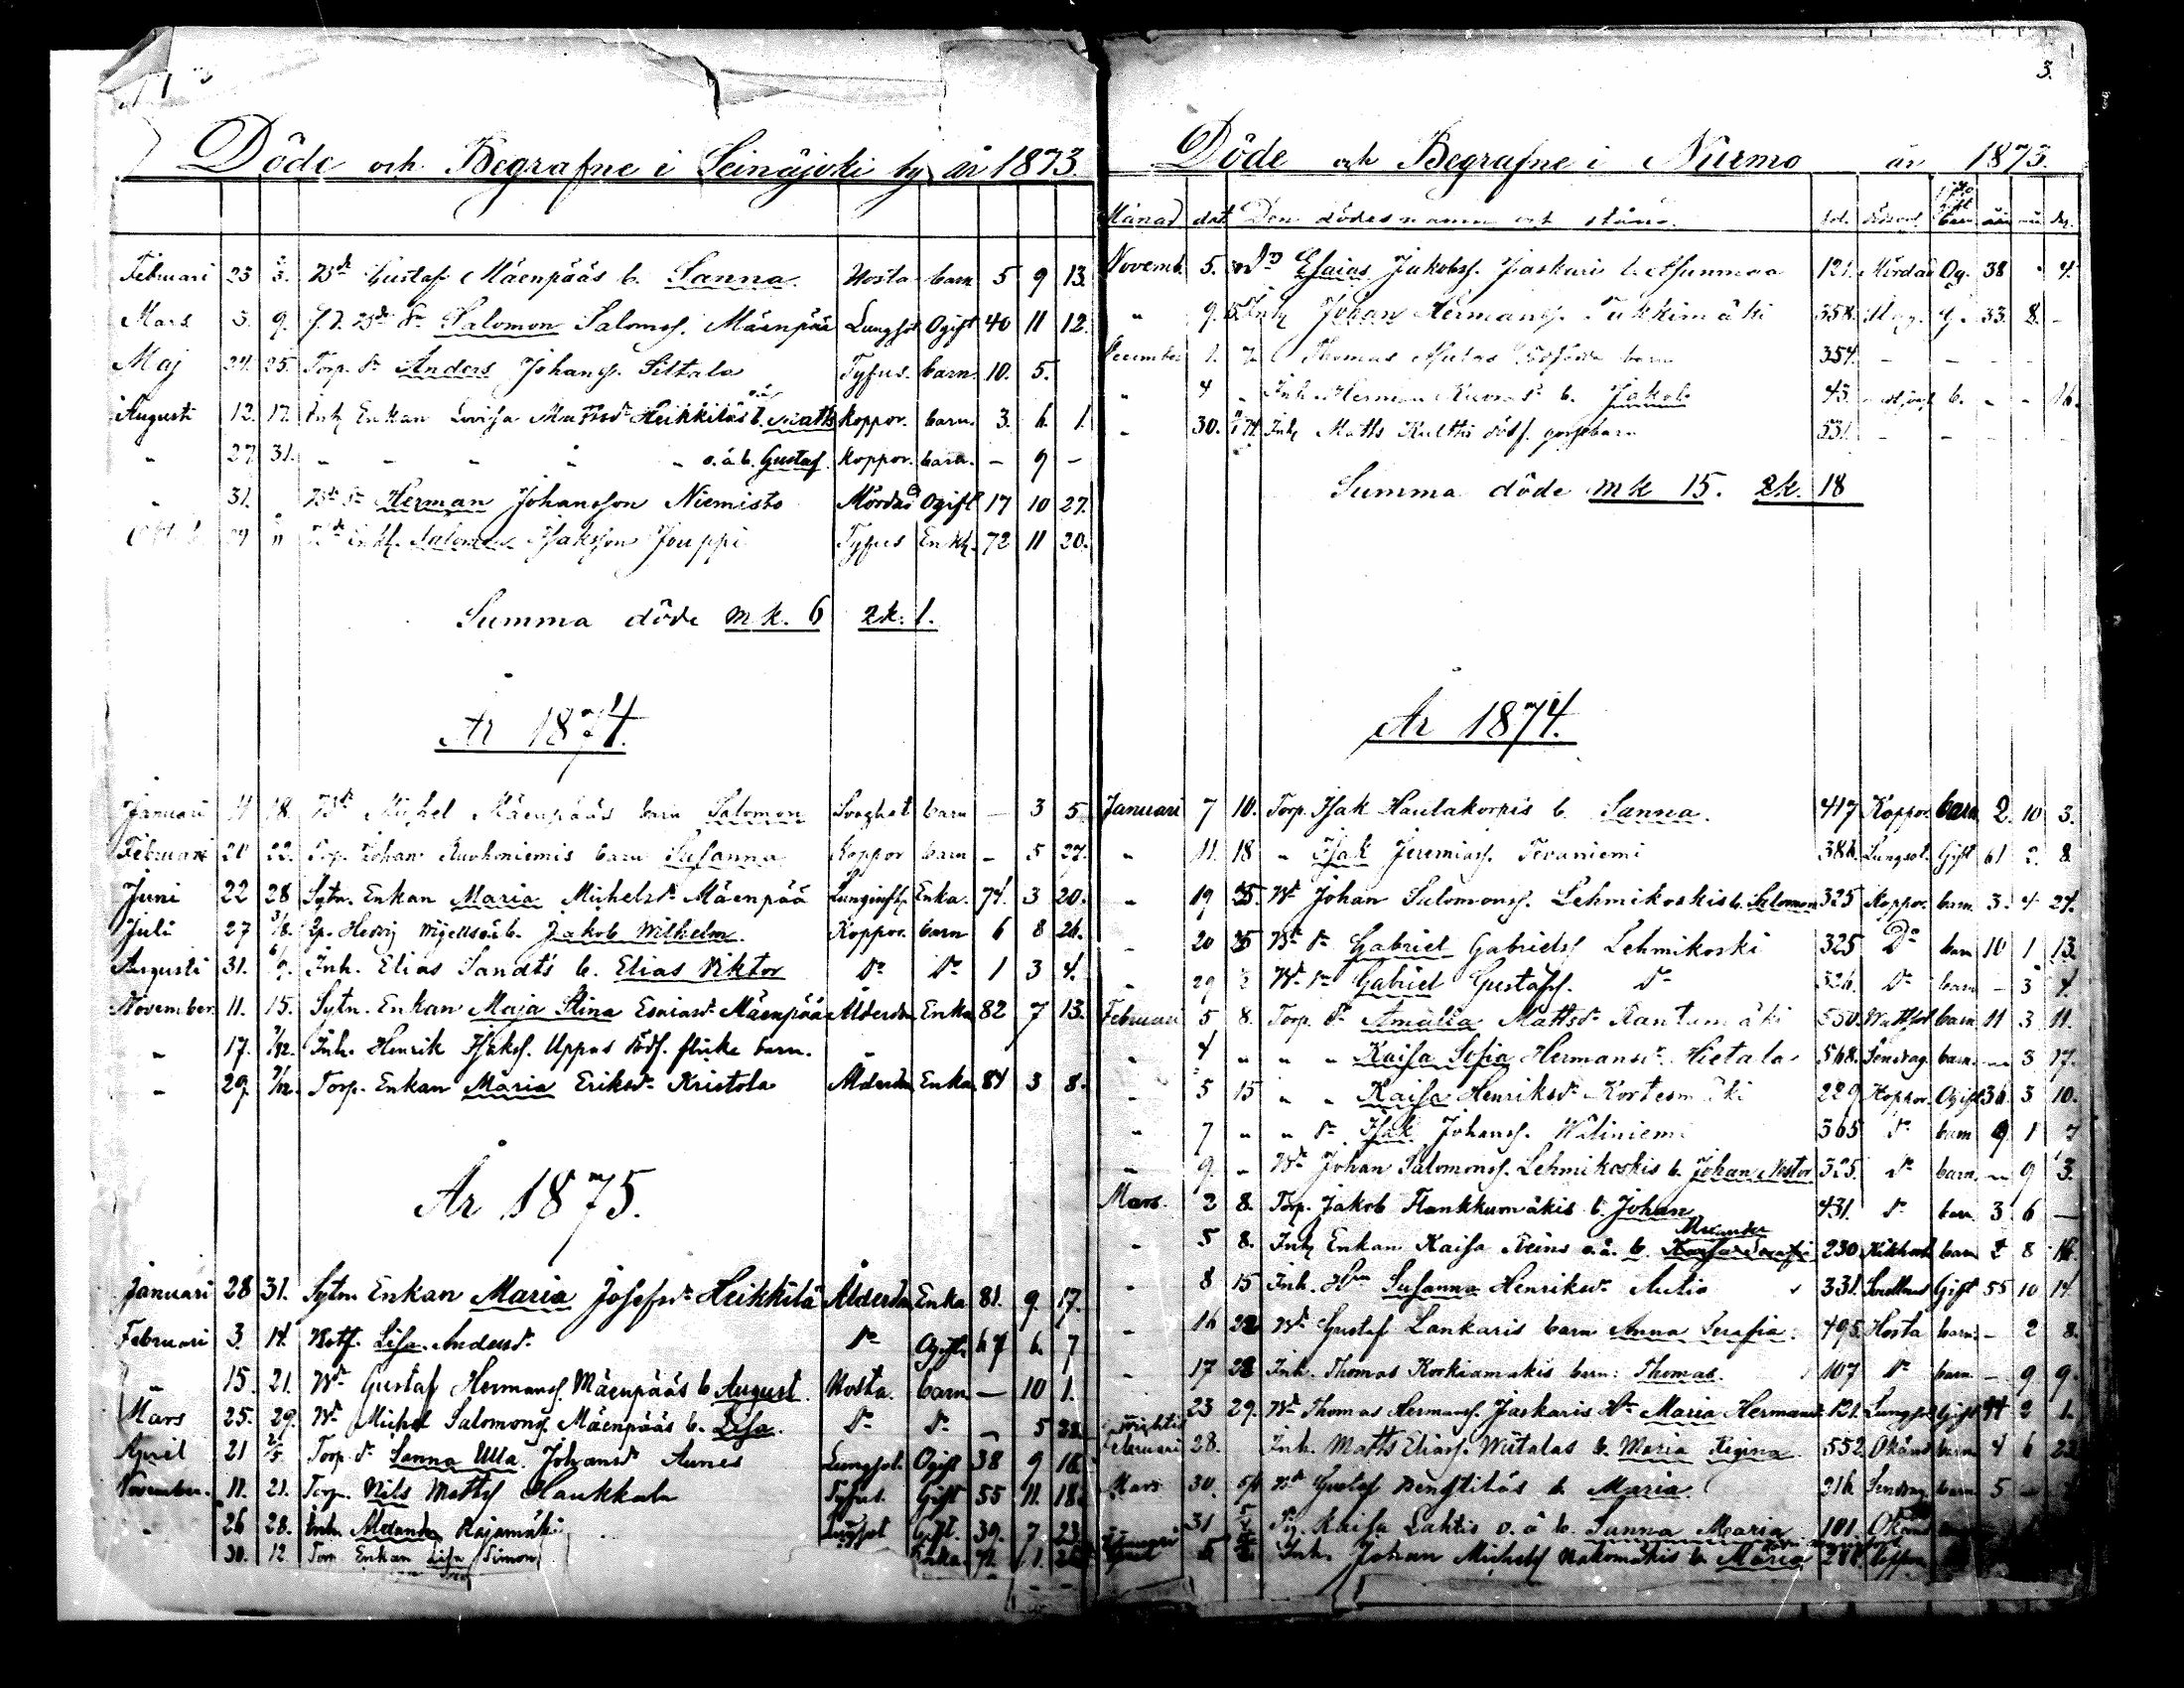 Döde och Begrafne i Seinäjoki by år 1873.
Februari 23 2/3. Bd Gustaf Mäenpääs b. Sanna. Hosta barn 5 9 13.
Mars 3. 9. f.d. Bd Sn Salomon Salomsf. Mäenpää Lungsot Ogift 40 11 12.
Maj 24. 25. Torp. Sn Anders Johansf. Siltala Tyfus. barn. 10. 5.
Augusti 12. 17. Inh Enkan Lovisa Mattsdr Heikkiläs o.ä. b. Matts Koppor. barn. 3. 6. 1.
" 27. 31. " " " " " o.ä b. Gustaf. Koppor. barn. - 9 -
" 31. Bd Sn Herman Johansson Niemisto Mördad Ogift 17 10 27.
29 Enkl. Salomon Isaksson Jouppi Tyfus Enkl. 72 11 20.
Summa döde mk. 6 qk. 1.
År 1874.
Januari 11 18. Bd Michel Mäenpääs barn Salomon barn - 3 5
Februari 20 22. Torp. Johan Ruohoniemis barn Susanna Koppor barn - 5 27.
Juni 22 28 Sytn. Enkan Maria Michelsdr Mäenpää Lunginfl. Enka. 74. 3 20.
Juli 27 3/8. Hedvig b. Jakob Wilhelm. Koppor. barn 6 8 26.
Augusti 31. 6/9. Inh. Elias Sandts b. Elias Viktor Do Do 1 3 4.
November. 11. 15. Sytn. Enkan Maja Stina Esaiasdr Mäenpää Ålderdom Enka 82 7 13.
" 17. 7/12. Inh. Henrik Isaksf. Uppas dödf. flicke barn. "
" 29. 7/12. Torp. Enkan Maria Eriksdr Kristola Ålderdom Enka 84 3 8.
År 1875.
Januari 28 31. Sytn Enkan Maria Josefsdr Heikkilä Ålderdm Enka 81. 9. 17.
Februari 3. 14. Lisa Andersdr Do Ogift. 67 6. 7
" 15. 21. Bd Gustaf Hermansf. Mäenpääs b August. Hosta. barn - 10 1.
Mars 25. 29. Bd Michel Salomonsf. Mäenpääs b. Lisa. Do Do - 5 28.
April 21 2/5 Torp. dr Sanna Ulla Johansdr Aunes Lungsot. Ogift 38 9 16.
November. 11. 21. Torp. Nils Mattsf Haukkala Tyfus. Gift 55 11. 18.
" 26 28. Inh. Alexander Rajamäki Lungsot Gift. 39. 7. 23.
30. 12 Torp Enkan Lisa Simon Enka 71. 1.
3.
Döde och Begrafne i Nurmo år 1873.
Månad dat. Den dödes namn och stånd. fol. dödsors. gift barn mån dag.
Novemb. 5. Esaias Jakobsf. Jaskari 121. Mördad Og. 38 " 4.
" 9. 15. Inh Johan Hermansf. Tukkimäki 358. g. 33. 8. -
December 1. 7 Thomas dödfödda barn 354. - - - -
" 4 " Inh. Herman b. Jakob 43. b. - - 16.
" 30. Inh Matts Kulttis dödf. gossebarn 531. - - - -
Summa döde mk 15. qk. 18
År 1874.
Januari 7 10. Torp. Isak Hautakorpis b. Sanna. 417 Koppor. barn 2. 10 3.
" 11. 18 " Isak Jeremiasf. Tevaniemi 386. Lungsot. Gift 61 2. 8.
" 19 25. Bd Johan Salomonsf. Lehmikoskis b. Salomon 325 Koppor. barn. 3. 4 24.
" 20 25 Bd Sn Gabriel Gabrielsf Lehmikoski 325 Do barn 10 1 13.
" 29 2 Bd Sn Gabriel Gustafsf. Do 326. Do barn - 3 4.
Februari 5 8. Torp. Dr Amalia Mattsdr Rantamäki 550. Wattsot barn 11 3 11.
" 4 " " " Kaisa Sofia Hermansdr Hietala 568. Sendrag. barn. - 3 17.
" 5 15 " " Kaisa Henriksdr Kortesmäki 229. Koppor. Ogift 36. 3 10.
" 7 " " Sn Isak Johansf. Wäliniemi 365 Do barn 9 1 7
" 9. " Bd Johan Salomonsf. Lehmikoskis b. Johan Nestor 325. Do barn. - 9 3.
Mars. 2 8. Torp. Jakob Flankkumäkis b. Johan 431. Do barn 3 6 -
" 5 8. Inh Enkan Kaisa Reins o.ä. b. Alexander 230. Kikhosta barn 2 8 16.
" 8 15 Inh. Hm Susanna Henriksdr Autio 331. Gift 55 10 14
" 16 22 Bd Gustaf Lankaris barn Anna Serafia. 495. Hosta barn. - 2 8.
" 17 22 Inh. Thomas Korkiamäkis barn: Thomas. 107 Do barn. - 9 9.
23 29. Bd Thomas Hermansf. Jaskaris Hu Maria Hermansdr 121. Lungsot Gift 44 2 1.
Februari 28. Inh. Matts Eliasf. Wiitalas b. Maria Regina. 552. Okänd barn 4 6 22
Mars 30. 5/4 Bd Gustaf Bengtiläs b. Maria. 216. Sendrag. barn 5 -
31 5/4 Pig. Kaisa Lahtis o. ä b. Sanna Maria 101. Okänd
5 Inh. Johan Michelsf b. Maria 288. Koppor